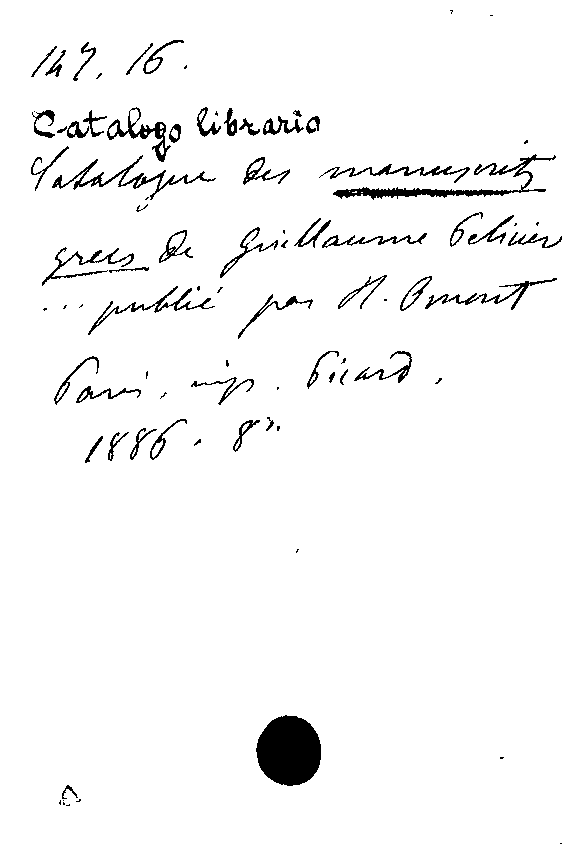 147. 16.
Catalogo librario
Catalogue des manuscrits
grecs de Guillaume Pelicier
... publié par H. Omont
Paris, imp. Picard,
1886. 8º.